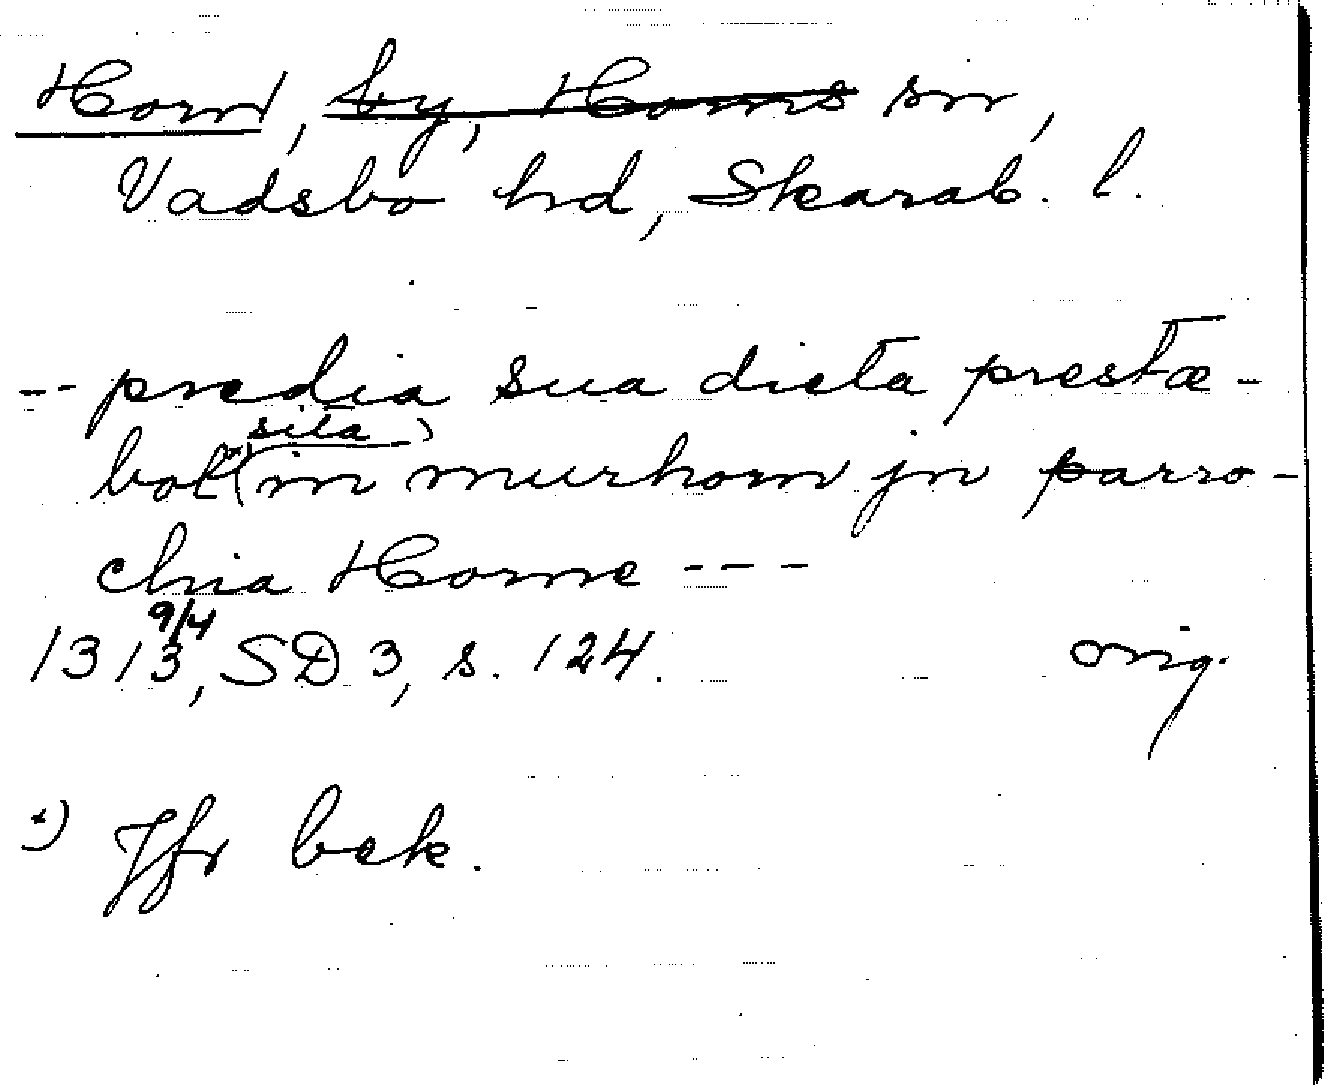 Horn, by, Horns sn,
Vadsbo hd, Skarab. l.
-- predia sua dicta prestæ-
sita
bol in murhom jn parro-
chia Horne ---
9/4
1313, SD 3, s. 124. orig.
Jfr bek.